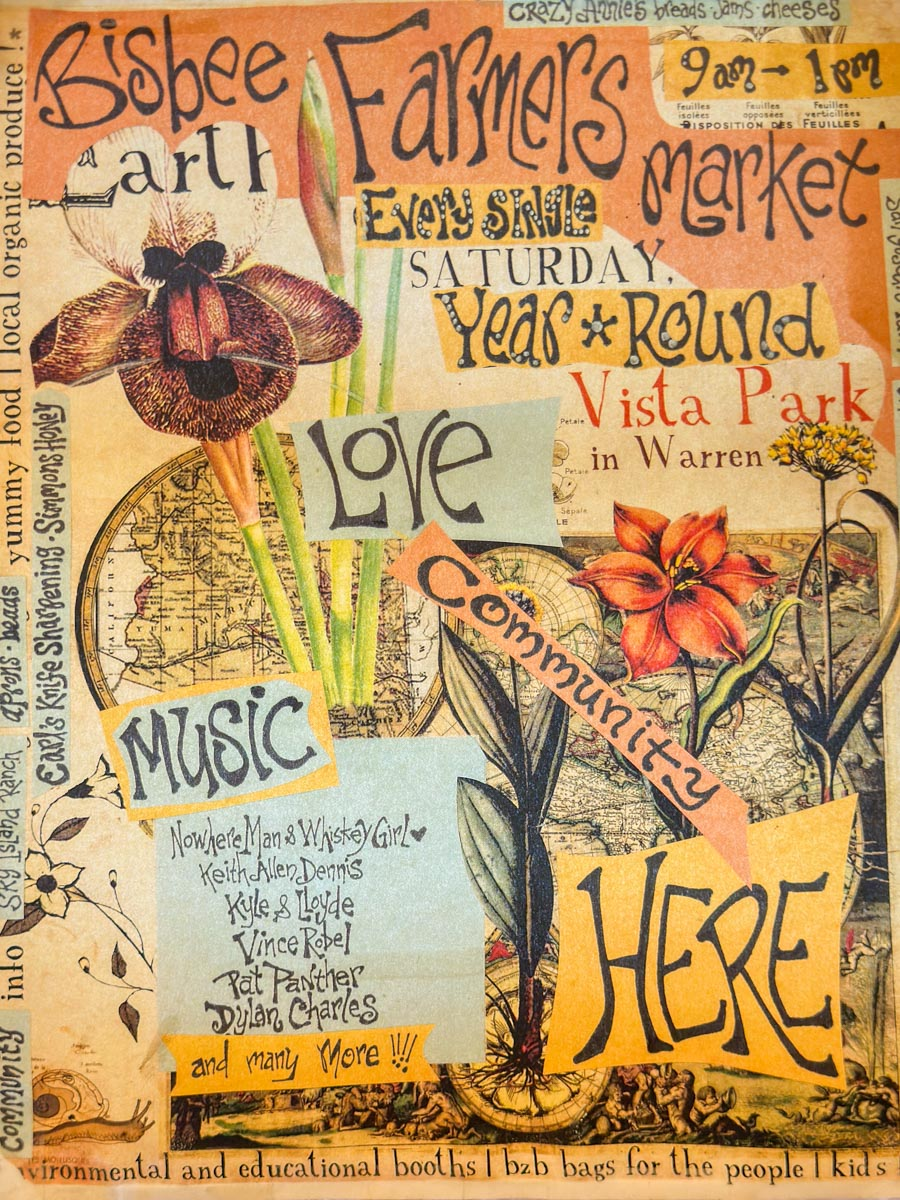 CRAZY ANNIE'S breads · Jams · cheeses
Bisbee Farmers
9am → 1pm
Feuilles isolées
Feuilles opposées
Feuilles verticillées
DISPOSITION DES FEUILLES
market
Earth
EVERY SINGLE
SATURDAY,
Year * Round
Vista Park
in Warren
Petale
Petale
Sépale
LOVE
Community
HERE
MUSIC
Nowhere Man & Whiskey Girl ♥
Keith Allen Dennis
Kyle & Lloyde
Vince Robel
Pat Panther
Dylan Charles
and many More !!!!
info
yummy food | local organic produce ! *
Carl's Knife Sharpening · Simmons Honey
aprons · beads
Sky Island Ranch
Community
vironmental and educational booths | bzb bags for the people | kids